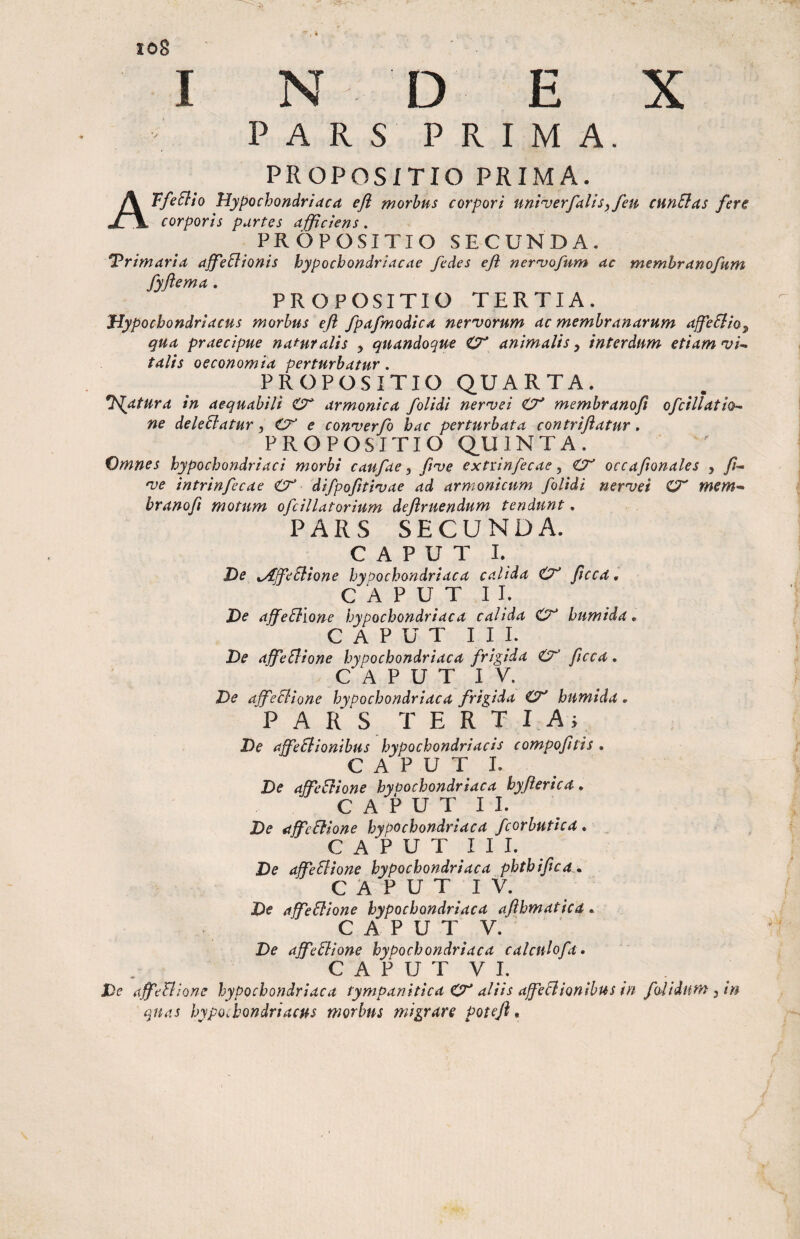 108
INDEX
PARS PRIMA.
PROPOSITIO PRIMA.
AFfectio Hypochondriaca eſt morbus corpori univerſalis, ſeu cunctas fere
corporis partes afficiens.
PROPOSITIO SECUNDA.
Primaria affectionis hypochondriacae ſedes eſt nervoſum ac membranoſum
ſyſtema.
PROPOSITIO TERTIA.
Hypochondriacus morbus eſt ſpaſmodica nervorum ac membranarum affectio,
qua praecipue naturalis, quandoque & animalis, interdum etiam vi-
talis oeconomia perturbatur.
PROPOSITIO QUARTA.
Natura in aequabili & armonica ſolidi nervei & membranoſi oſcillatio-
ne delectatur, & e converſo hac perturbata contriſtatur.
PROPOSITIO QUINTA.
Omnes hypochondriaci morbi cauſae, ſive extrinſecae, & occaſionales, ſi-
ve intrinſecae & diſpoſitivae ad armonicum ſolidi nervei & mem-
branoſi motum oſcillatorium deſtruendum tendunt.
PARS SECUNDA.
CAPUT I.
De Affectione hypochondriaca calida & ſicca.
CAPUT II.
De affectione hypochondriaca calida & humida.
CAPUT III.
De affectione hypochondriaca frigida & ſicca.
CAPUT IV.
De affectione hypochondriaca frigida & humida.
PARS TERTIA;
De affectionibus hypochondriacis compoſitis.
CAPUT I.
De affectione hypochondriaca hyſterica.
CAPUT II.
De affectione hypochondriaca ſcorbutica.
CAPUT III.
De affectione hypochondriaca phthiſica.
CAPUT IV.
De affectione hypochondriaca aſthmatica.
CAPUT V.
De affectione hypochondriaca calculoſa.
CAPUT VI.
De affectione hypochondriaca tympanitica & aliis affectionibus in ſolidum, in
quas hypochondriacus morbus migrare poteſt.